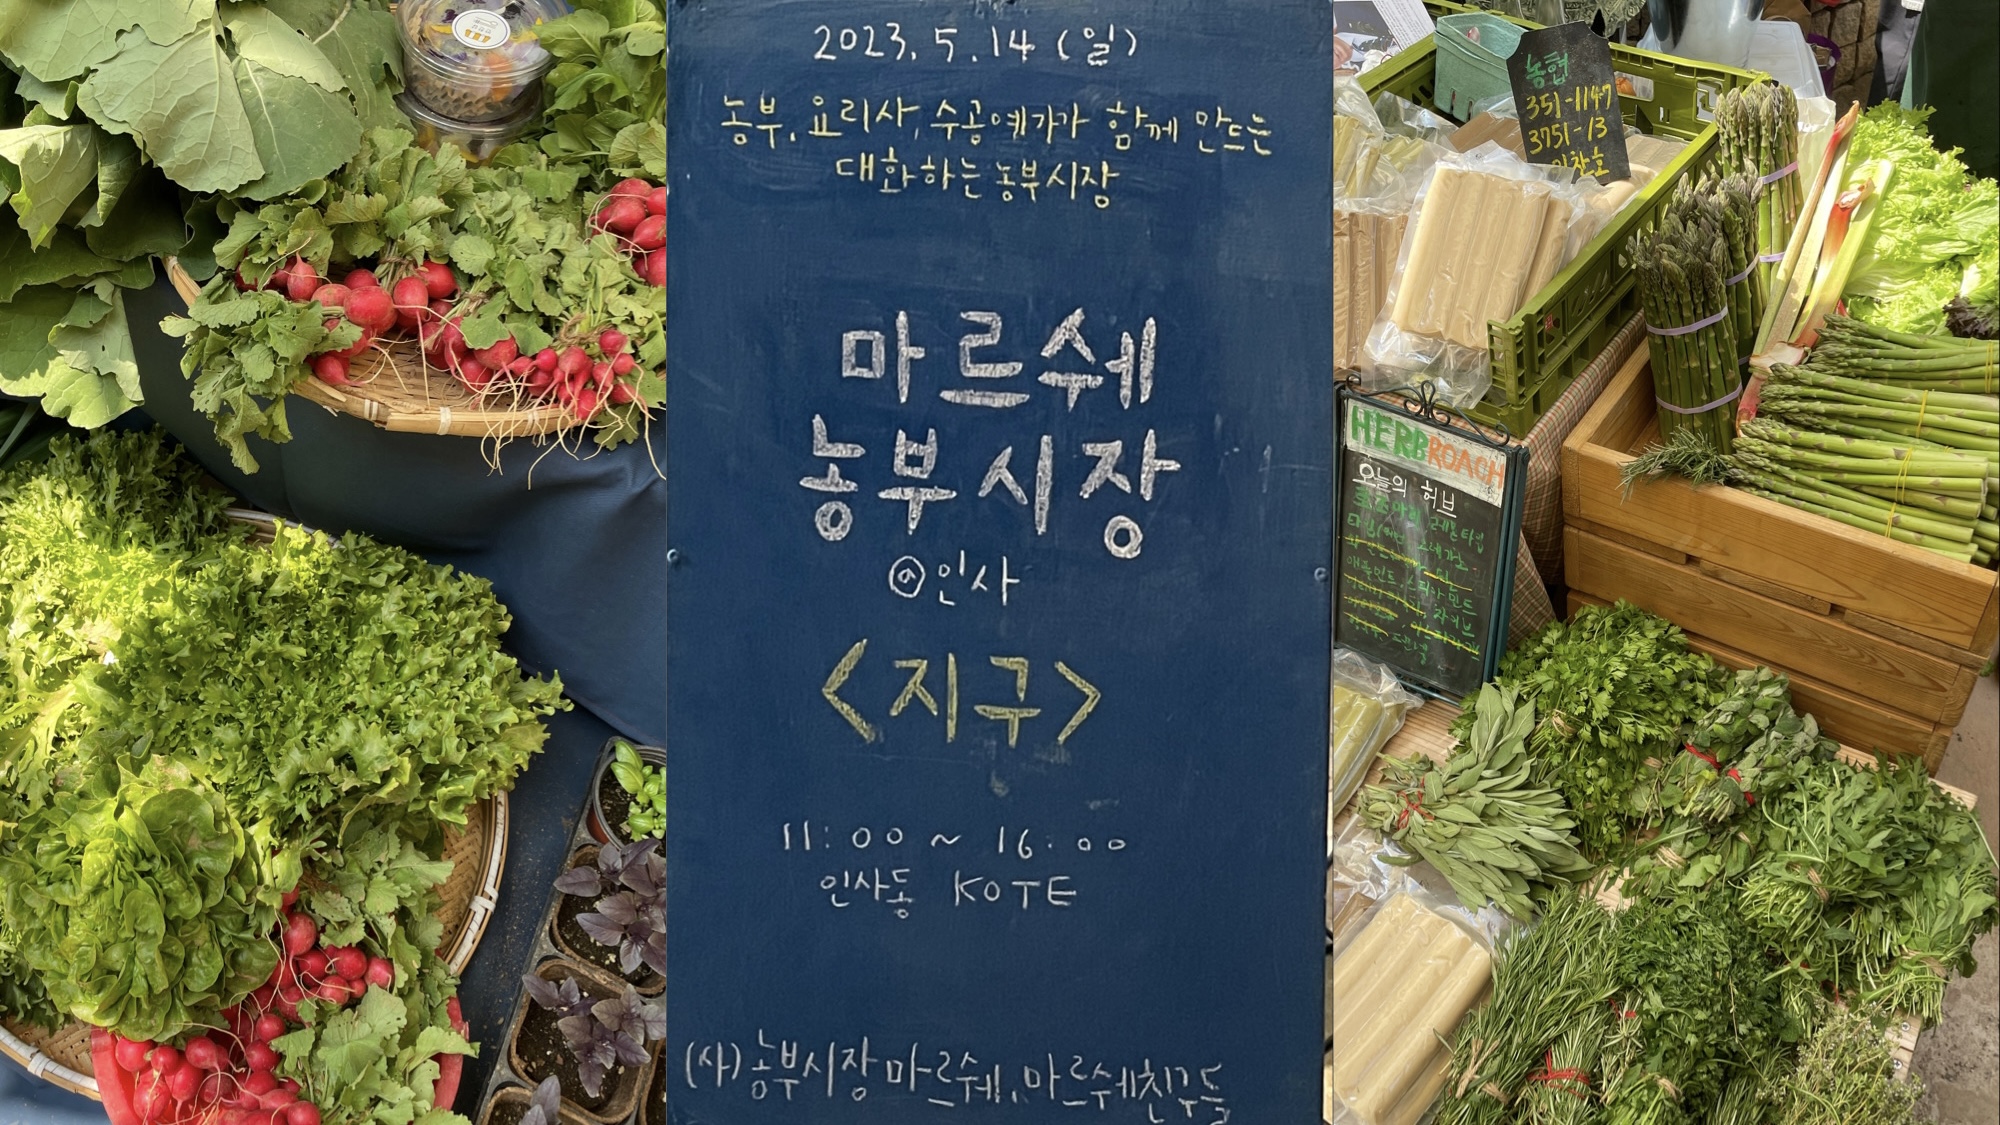 2023. 5. 14 (일)
농부, 요리사, 수공예가가 함께 만드는
대화하는 농부시장
마르쉐
농부시장
@인사
<지구>
11:00 ~ 16:00
인사동 KOTE
(사)농부시장 마르쉐, 마르쉐친구들
농협
351-1147
3751-13
HERBROACH
오늘의 허브
로즈마리 레몬타임
애플민트, 스피아민트